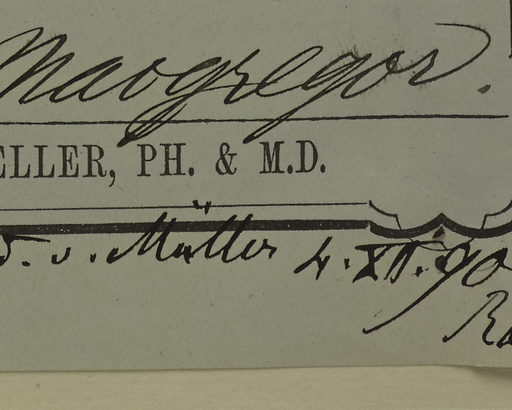 Macgregor.
ELLER, PH. & M.D.
F. v. Müller 4.XII.90